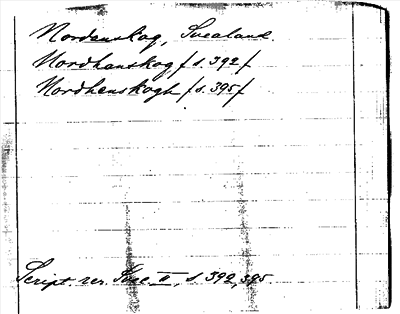 Nordanskog, Svealand.
Nordhanskog /s. 392/
Nordhenskogh /s. 395/
Script. rer. Svec. II, s. 392, 395.